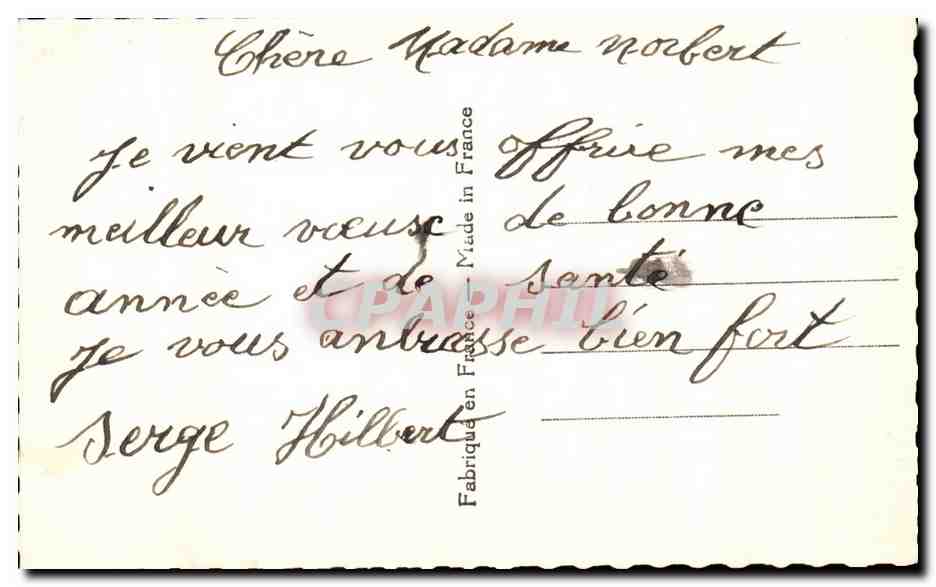 Chère Madame Norbert
Je vient vous offrire mes
meilleur vœuse de bonne
année et de santé
Je vous anbrasse bien fort
Serge Hilbert
Fabriqué en France - Made in France
CPAPHIL